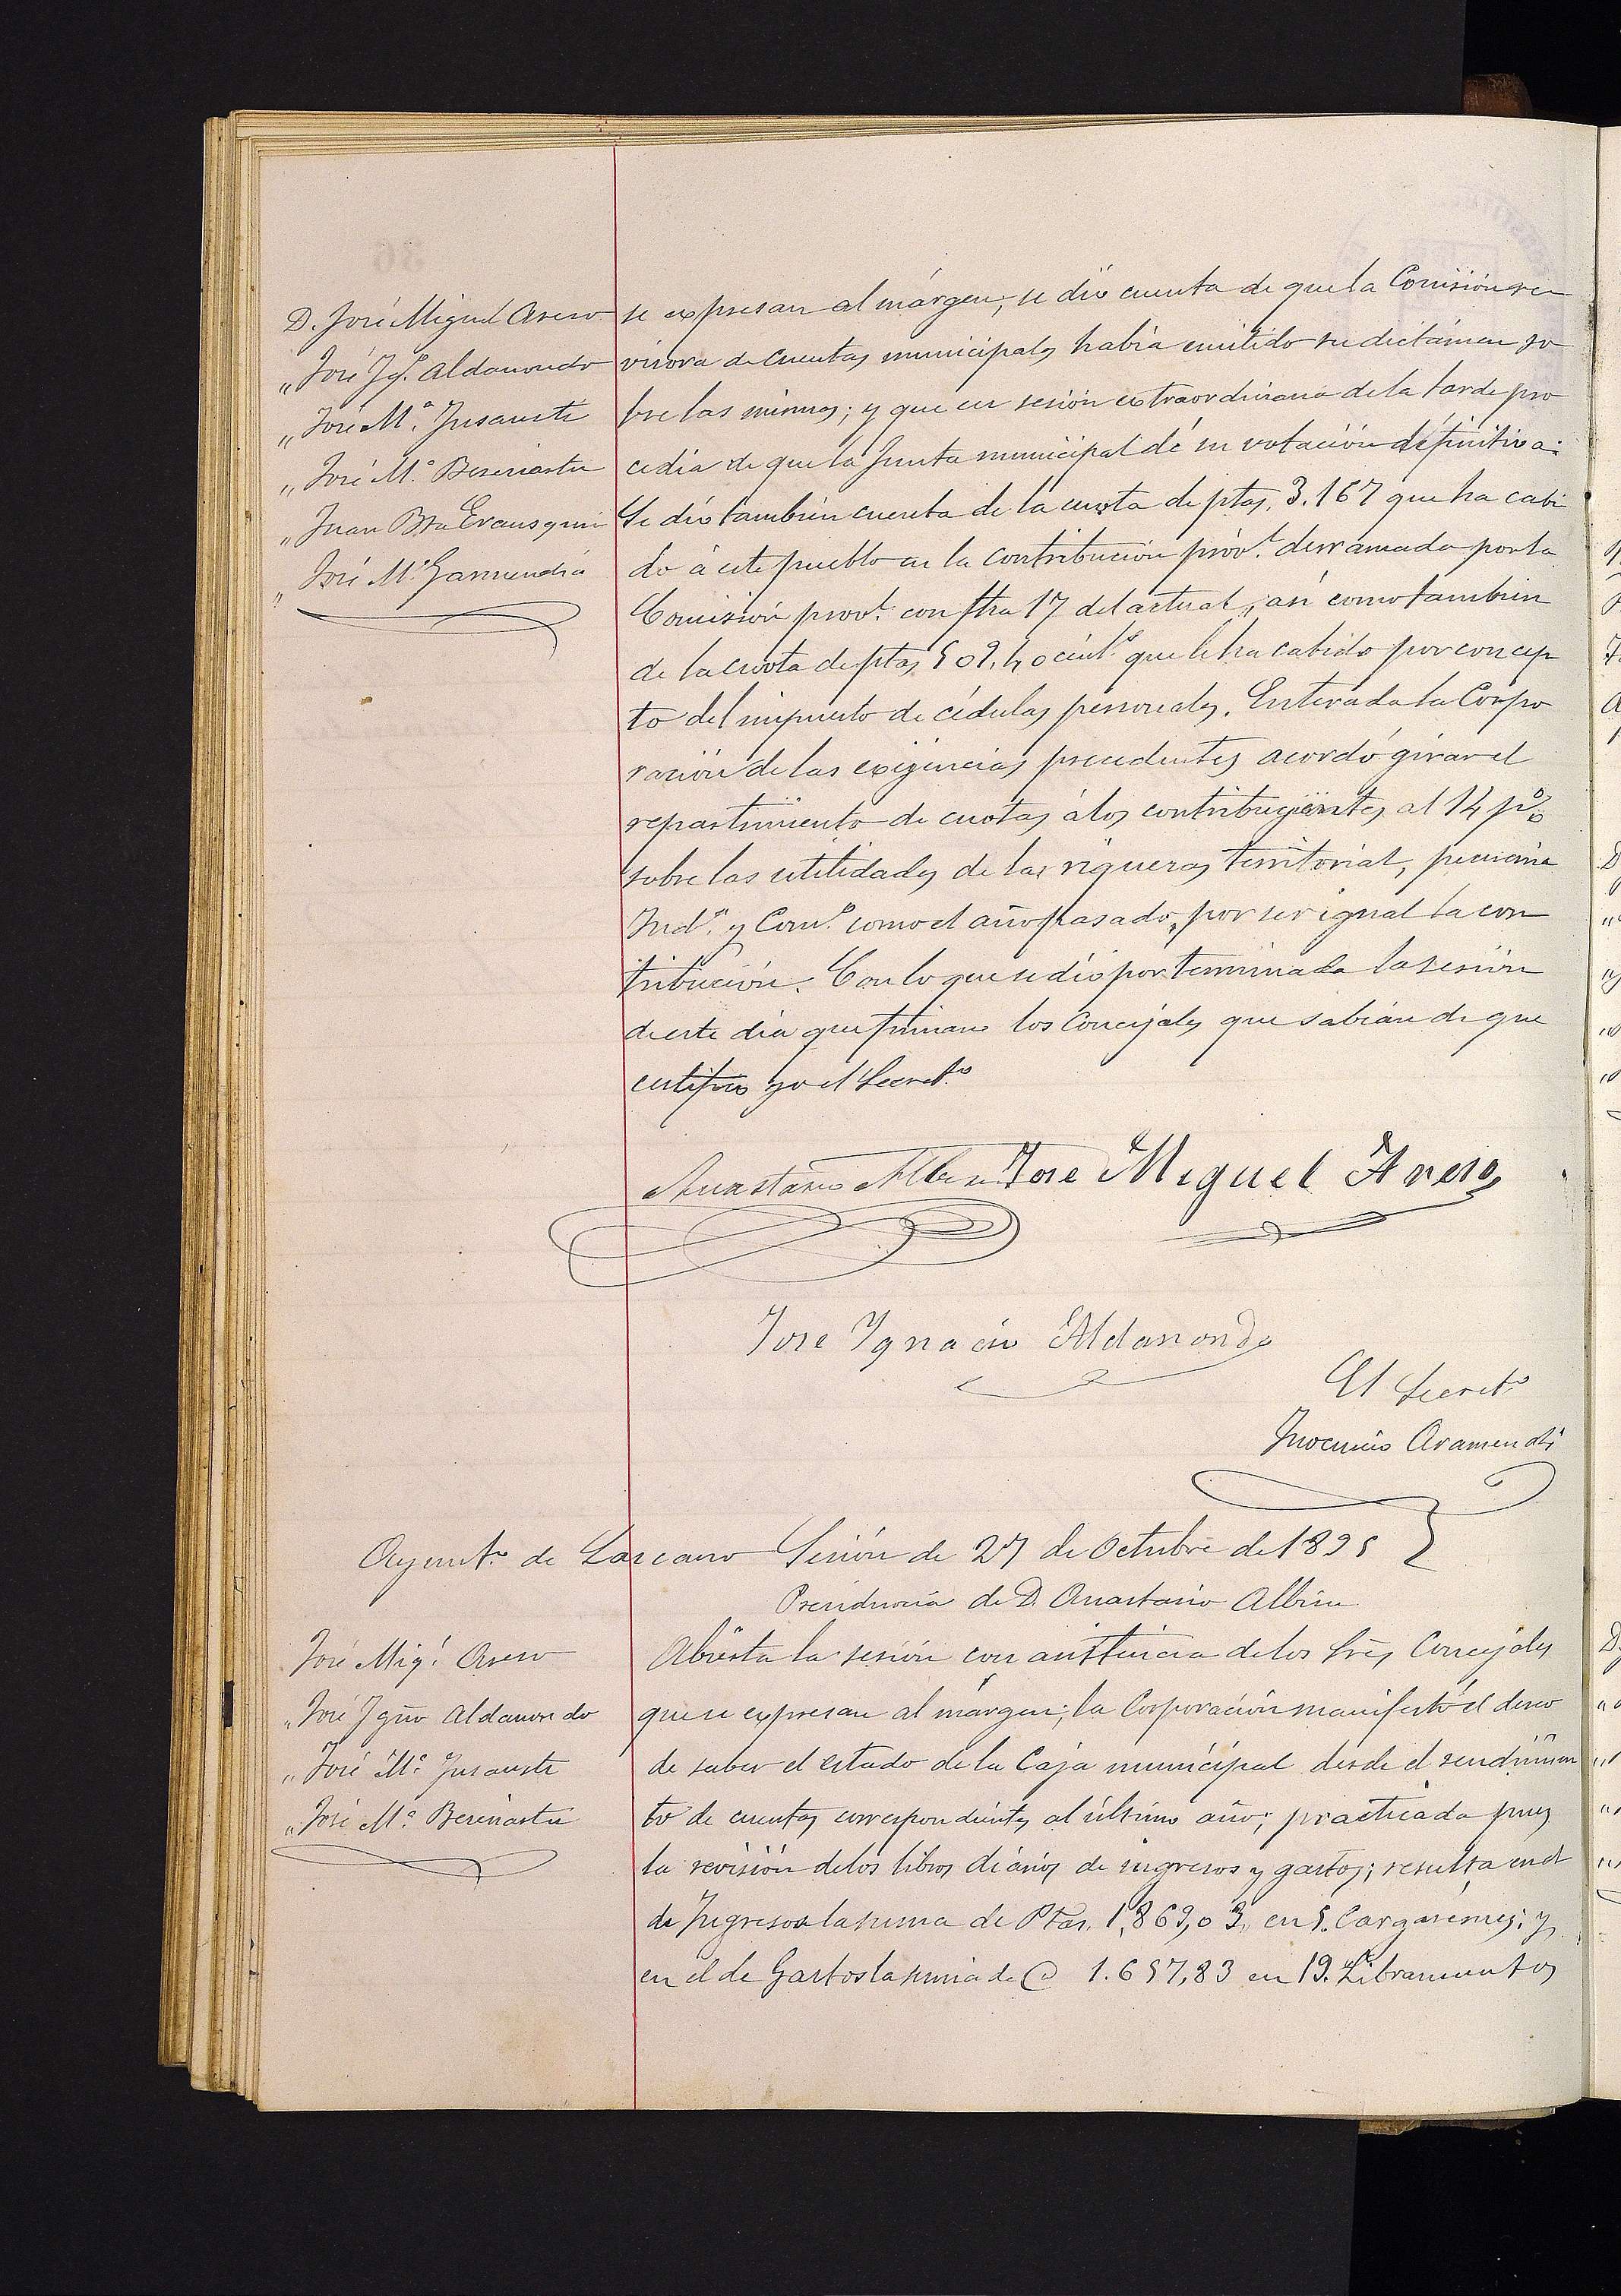 D. José Miguel Areso
„ José Ygº. Aldanondo
„ José Mª. Ynsausti
„ José Mª. Beseriartu
„ Juan Bta Erausquin
„ José Mª. Garmendia
se expresan al márgen; se dió cuenta de que la Comisión re
visora de cuentas municipales había emitido su dictámen so
bre las mismas; y que en sesión extraordinaria de la tarde pro
cedía de que la Junta municipal dé su votación definitiva:
Se dió también cuenta de la cuota de ptas. 3.167 que ha cabi
do á este pueblo en la contribución provl. derramada por la
Comisión provl. con fha 17 del actual, así como tambien
de la cuota de ptas 509,40 cents. que le ha cabido por concep
to del impuesto de cédulas personales. Enterada la Corpo
ración de las exigencias precedentes acordó girar el
repartimiento de cuotas á los contribuyentes al 14 p%
sobre las utilidades de las riquezas territorial, pecuaria
Indl. y Coml. como el año pasado, por ser igual la con
tribución. Con lo que se dió por terminada la sesión
de este día que firman los Concejales que sabían de que
certifico yo el Secretº
Anastasio Albisu José Miguel Areso
Jose Ygnacio Aldanondo
El Secretº
Inocencio Aramendi
Ayuntº. de Lazcano Sesión de 27 de Octubre de 1895
Presidencia de D. Anastasio Albisu
José Migl. Areso
„ José Ygnº Aldanondo
„ José Mª. Ynsausti
„ José Mª. Beseriartu
Abierta la sesión con asistencia de los Sres Concejales
que se expresan al márgen; la Corporación manifestó el deseo
de saber el estado de la Caja municipal desde el rendimien
to de cuentas correspondientes al último año; practicada pues
la revisión de los libros diarios de ingresos y gastos; resulta en el
de Ingresos la suma de Ptas. 1,869,03, en 5. Cargarémes; y
en el de Gastos la suma de @ 1.657,83 en 19. Libramientos